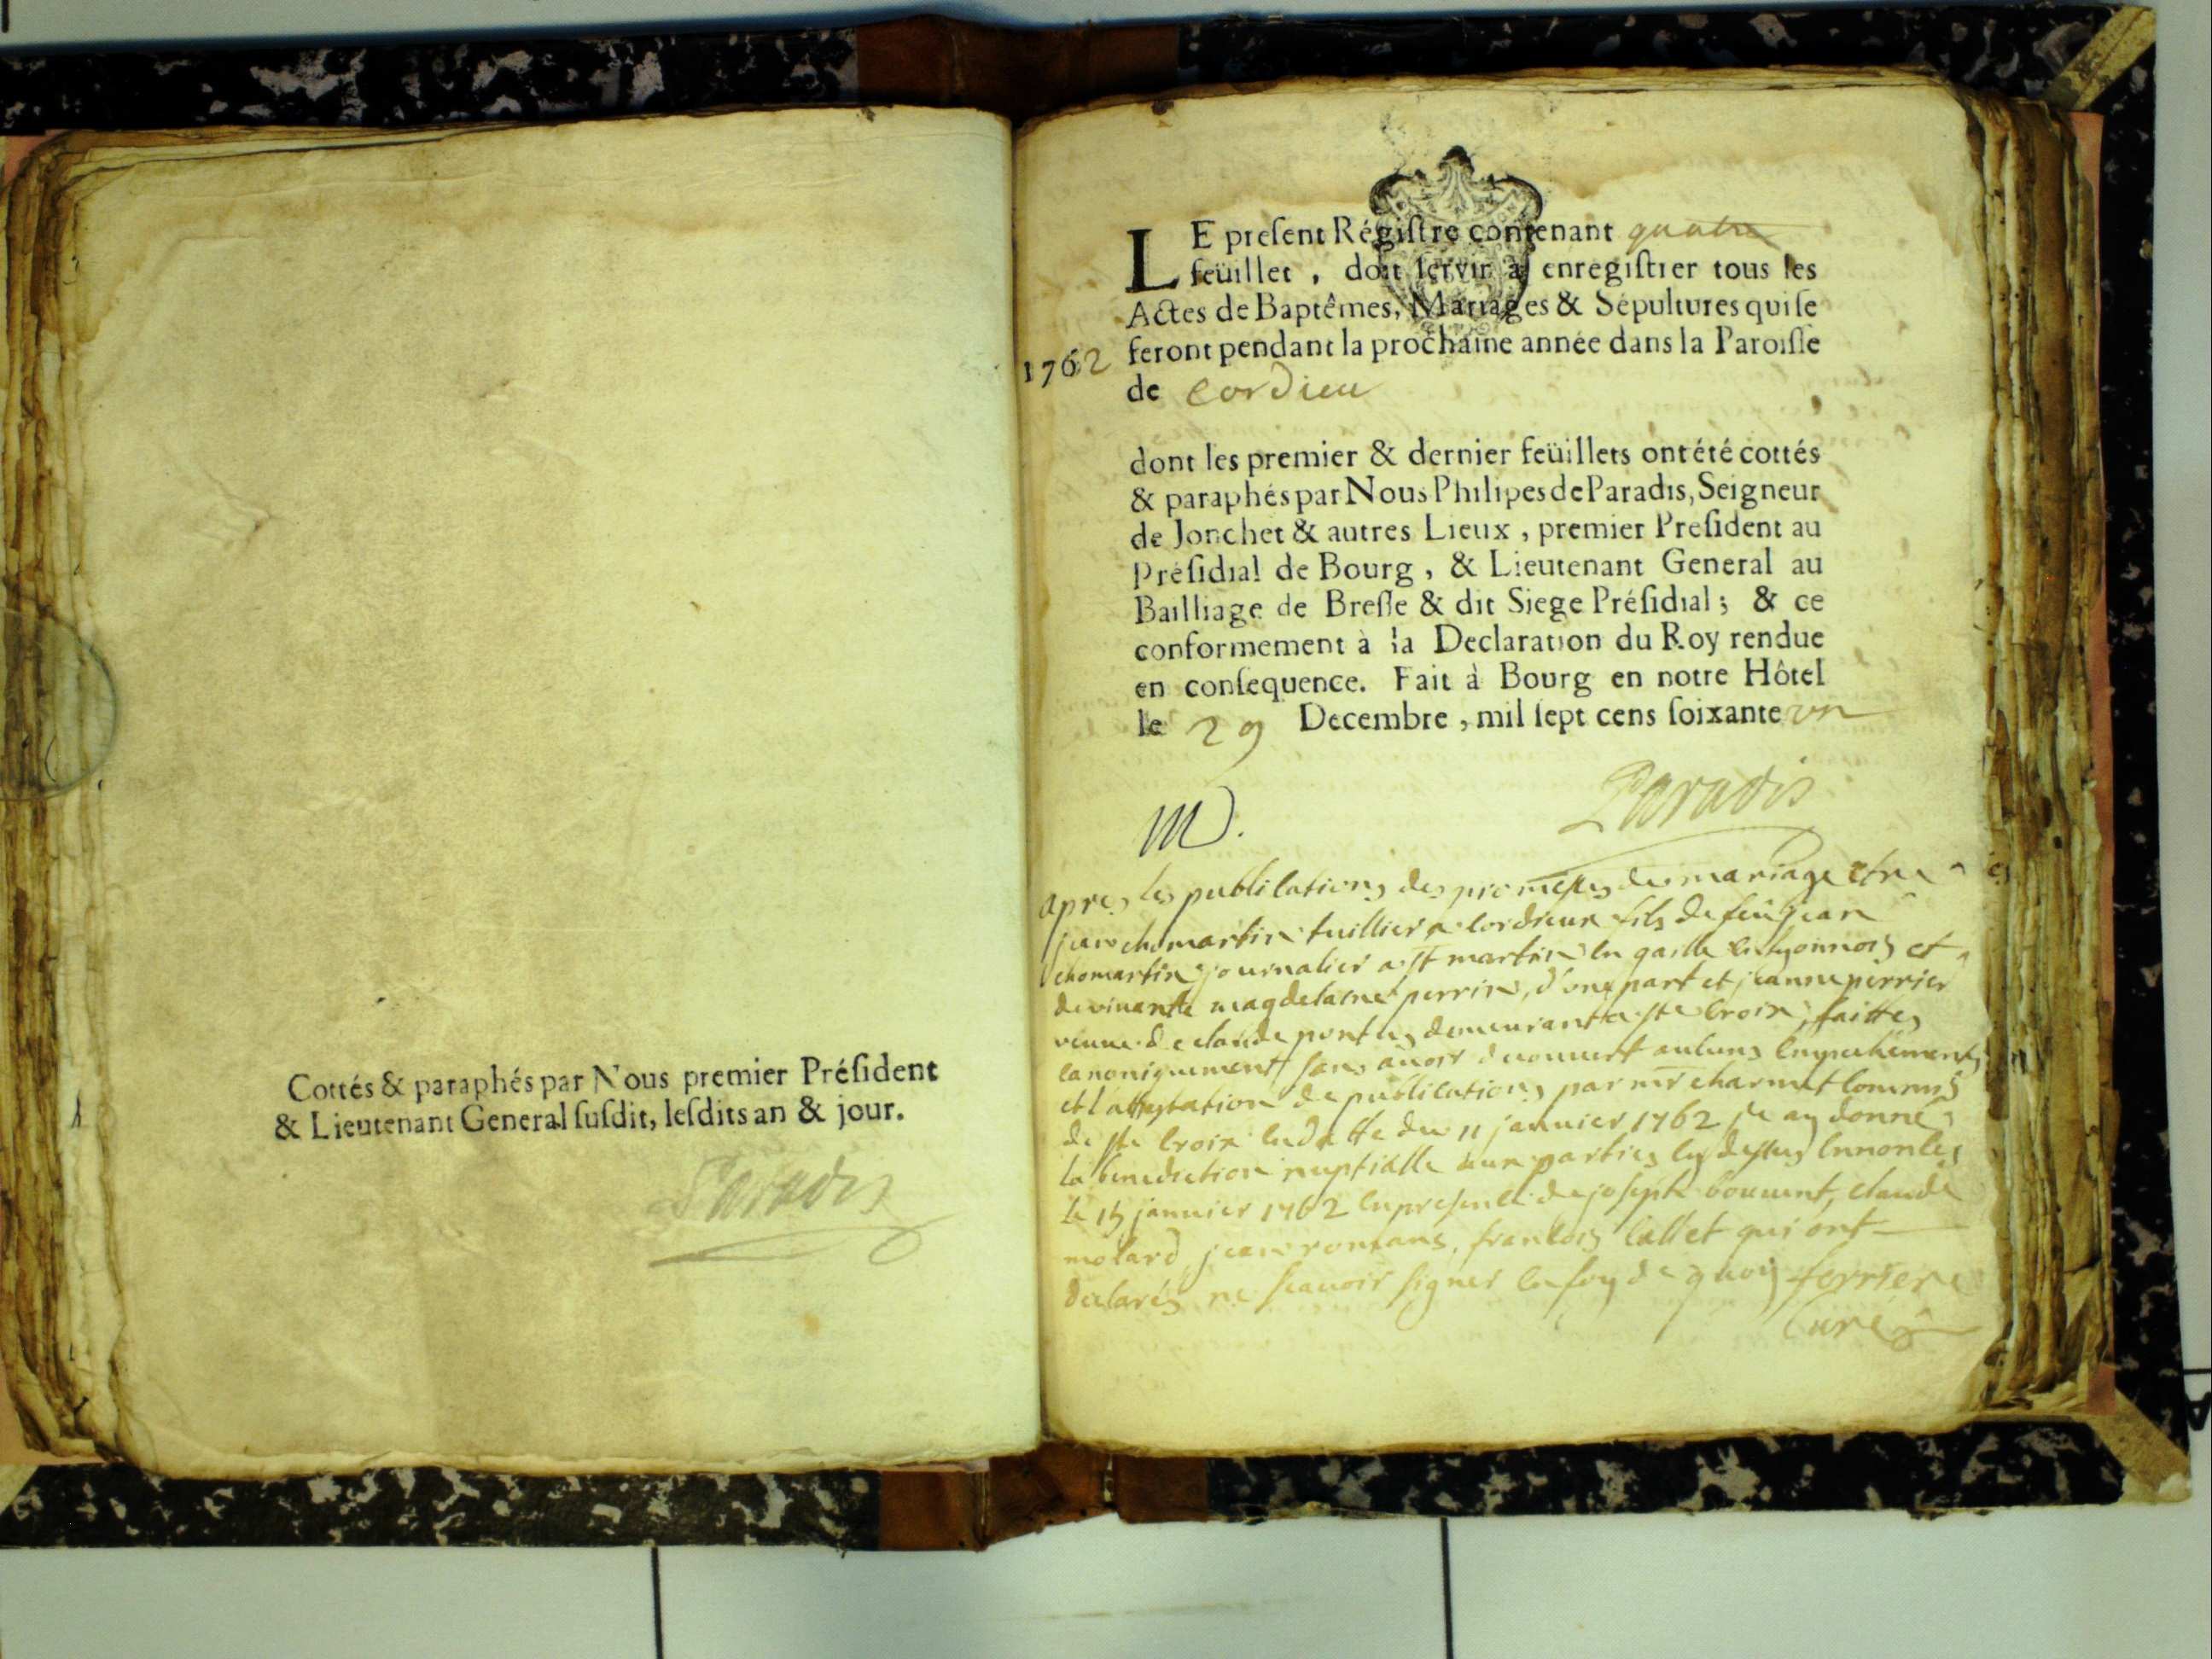 Cottés & paraphés par Nous premier Préſident
& Lieutenant General ſuſdit, leſdits an & jour.
Paradis
LE preſent Régiſtre contenant quatre
feüillet , doit ſervir à enregiſtrer tous les
Actes de Baptêmes, Mariages & Sépultures qui ſe
feront pendant la prochaine année dans la Paroiſſe
1762
de Cordieu
dont les premier & dernier feüillets ont été cottés
& paraphés par Nous Philipes de Paradis, Seigneur
de Jonchet & autres Lieux , premier Preſident au
Préſidial de Bourg , & Lieutenant General au
Bailliage de Breſſe & dit Siege Préſidial ; & ce
conformement à la Declaration du Roy rendue
en conſequence. Fait à Bourg en notre Hôtel
le 29 Decembre , mil ſept cens ſoixante un
Paradis
M.
apres les publications des promesses de mariage etre
jean chomartin tuillier a cordieux fils de feu jean
chomartin journalier a st martin en lyonnois et
de vivante magdelaine perrin, d'une part et jeanne perrier
veuve de claude demeurant a ste croix, faittes
canoniquement sans avoir decouvert aucuns empechements
et l attestation de publications par mr charmet commis
de ste croix en datte du 11 janvier 1762 je ay donné
la benediction nuptialle aux parties cy dessus ennoncés
le janvier 1762 en presence de joseph bouvent, claude
molard, jean romans, francois callet qui ont
declarés ne scavoir signer en foy de quoy ferriere
curé